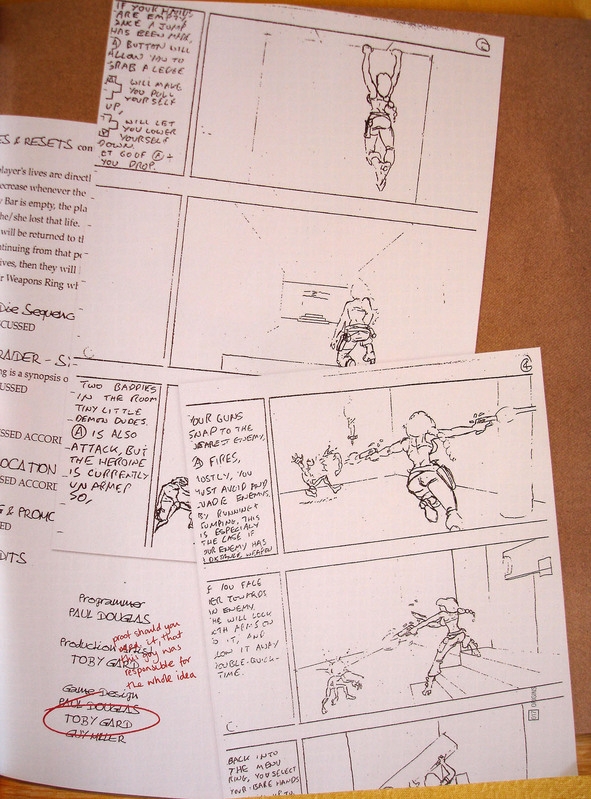 IF YOUR HANDS
ARE EMPTY,
HAS BEEN MADE,
A BUTTON WILL
ALLOW YOU TO
GRAB A LEDGE
WILL MAKE
YOU PULL
YOURSELF
UP,
WILL LET
YOU LOWER
YOURSELF
DOWN.
LET GO OF A +
YOU DROP.
ES & RESETS con
layer's lives are directl
crease whenever the
Bar is empty, the pla
he/she lost that life.
will be returned to tl
ntinuing from that p
ives, then they will
r Weapons Ring wh
Die Sequenc
CUSSED
RAIDER - S
ng is a synopsis o
CUSSED
SSED ACCORI
OCATION
SSED ACCORI
& PROMC
ED
DITS
TWO BADDIES
IN THE ROOM
TINY LITTLE
DEMON DUDES.
A IS ALSO
ATTACK, BUT
THE HEROINE
IS CURRENTLY
UNARMED
SO,
YOUR GUNS
SNAP TO THE
NEAREST ENEMY,
A FIRES,
MOSTLY, YOU
MUST AVOID AND
EVADE ENEMIES
BY RUNNING +
JUMPING, THIS
IS ESPECIALLY
THE CASE IF
YOUR ENEMY HAS
A DISTANCE WEAPON
IF YOU FACE
HER TOWARDS
AN ENEMY
SHE WILL LOCK
BOTH ARMS ON
TO IT, AND
BLOW IT AWAY
DOUBLE-QUICK-
TIME.
BACK INTO
THE MENU
RING, YOU SELECT
YOUR BARE HANDS
Programmer
PAUL DOUGLAS
Production Artist
TOBY GARD
Game Design
PAUL DOUGLAS
TOBY GARD
GUY MILLER
proof should you
need it, that
this guy was
responsible for
the whole idea